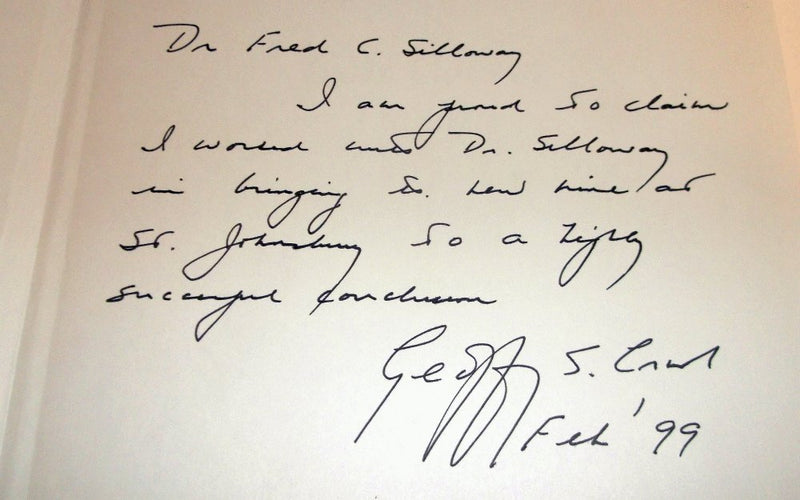 Dr Fred C. Silloway
I am proud to claim
I worked with Dr. Silloway
in bringing the new mine at
St. Johnsbury to a highly
successful conclusion
Geoff S.
Feb '99